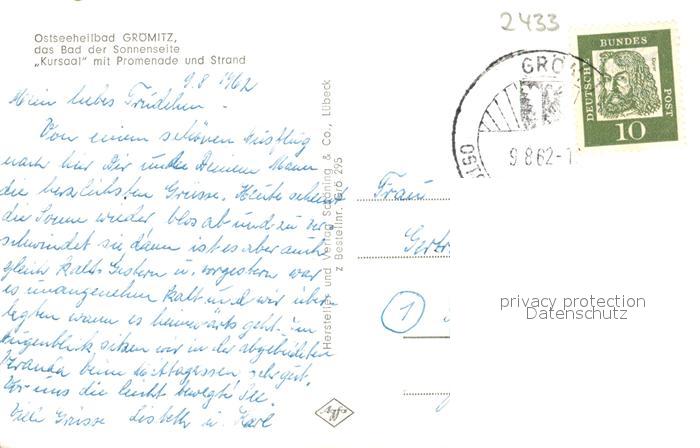 2433
Ostseeheilbad GRÖMITZ,
das Bad der Sonnenseite
„Kursaal" mit Promenade und Strand
9.8 1962
Mein liebes Trudchen.
Von einem schönen Ausflug
nach hier Dir und Deinem Mann
die herzlichsten Grüsse. Heute scheint
die Sonne wieder blos ab und zu ver-
schwindet sie dann ist es aber auch
gleich kalt. Gestern u. vorgestern war
es unangenehm kalt und wir über-
legten wann es heimwärts geht. Im
Augenblick sitzen wir in der abgebildeten
Veranda beim Mittagessen, sehr gut.
Vor uns die leicht bewegte See.
Viele Grüsse Lisbeth u. Karl
Hersteller und Verlag Schöning & Co., Lübeck
z Bestellnr. Grö 295
Agfa
GRÖ
OSTSE
9 8 62-1
DEUTSCHE
BUNDES
POST
Dürer
10
Frau
Gertr
1
privacy protection
Datenschutz